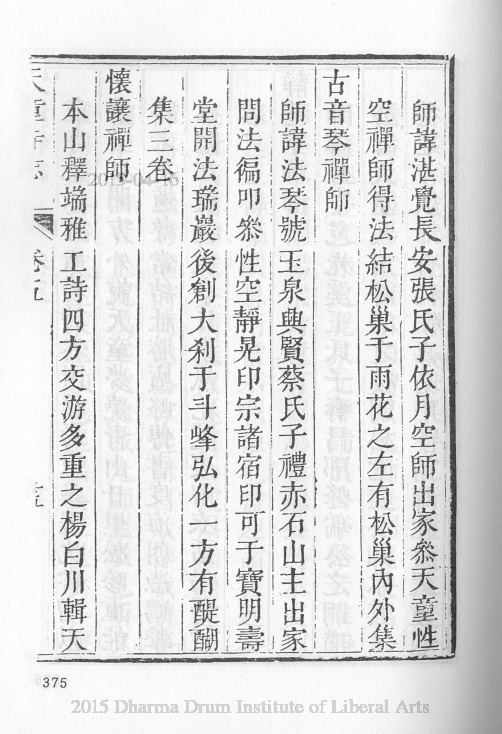 師諱湛覺長安張氏子依月空師出家叅天童性
空禪師得法結松巢于雨花之左有松巢內外集
古音琴禪師
師諱法琴號玉泉興賢蔡氏子禮赤石山主出家
問法徧叩叅性空靜晃印宗諸宿印可于寶明壽
堂開法瑞巖後創大刹于斗峰弘化一方有醍醐
集三卷
懷讓禪師
本山釋端雅工詩四方交游多重之楊白川輯天
天童寺志
卷五
375
2015 Dharma Drum Institute of Liberal Arts